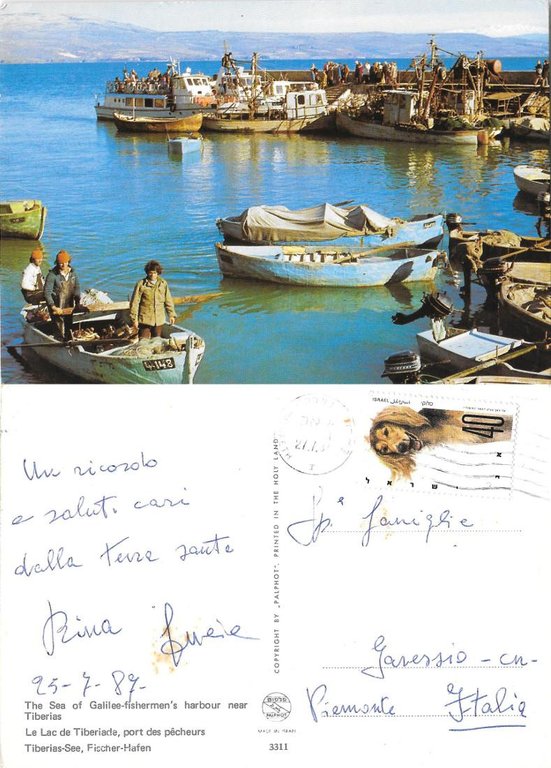 44-142
Un ricordo
e saluti cari
dalla terra santa
Rina
25-7-87-
The Sea of Galilee-fishermen's harbour near
Tiberias
Le Lac de Tiberiade, port des pêcheurs
Tiberias-See, Fischer-Hafen
COPYRIGHT BY „PALPHOT", PRINTED IN THE HOLY LAND
PALPHOT
MADE IN ISRAEL
3311
ISRAEL
40
ישראל
Sp. famiglie
Garessio - cn-
Piemonte Italia